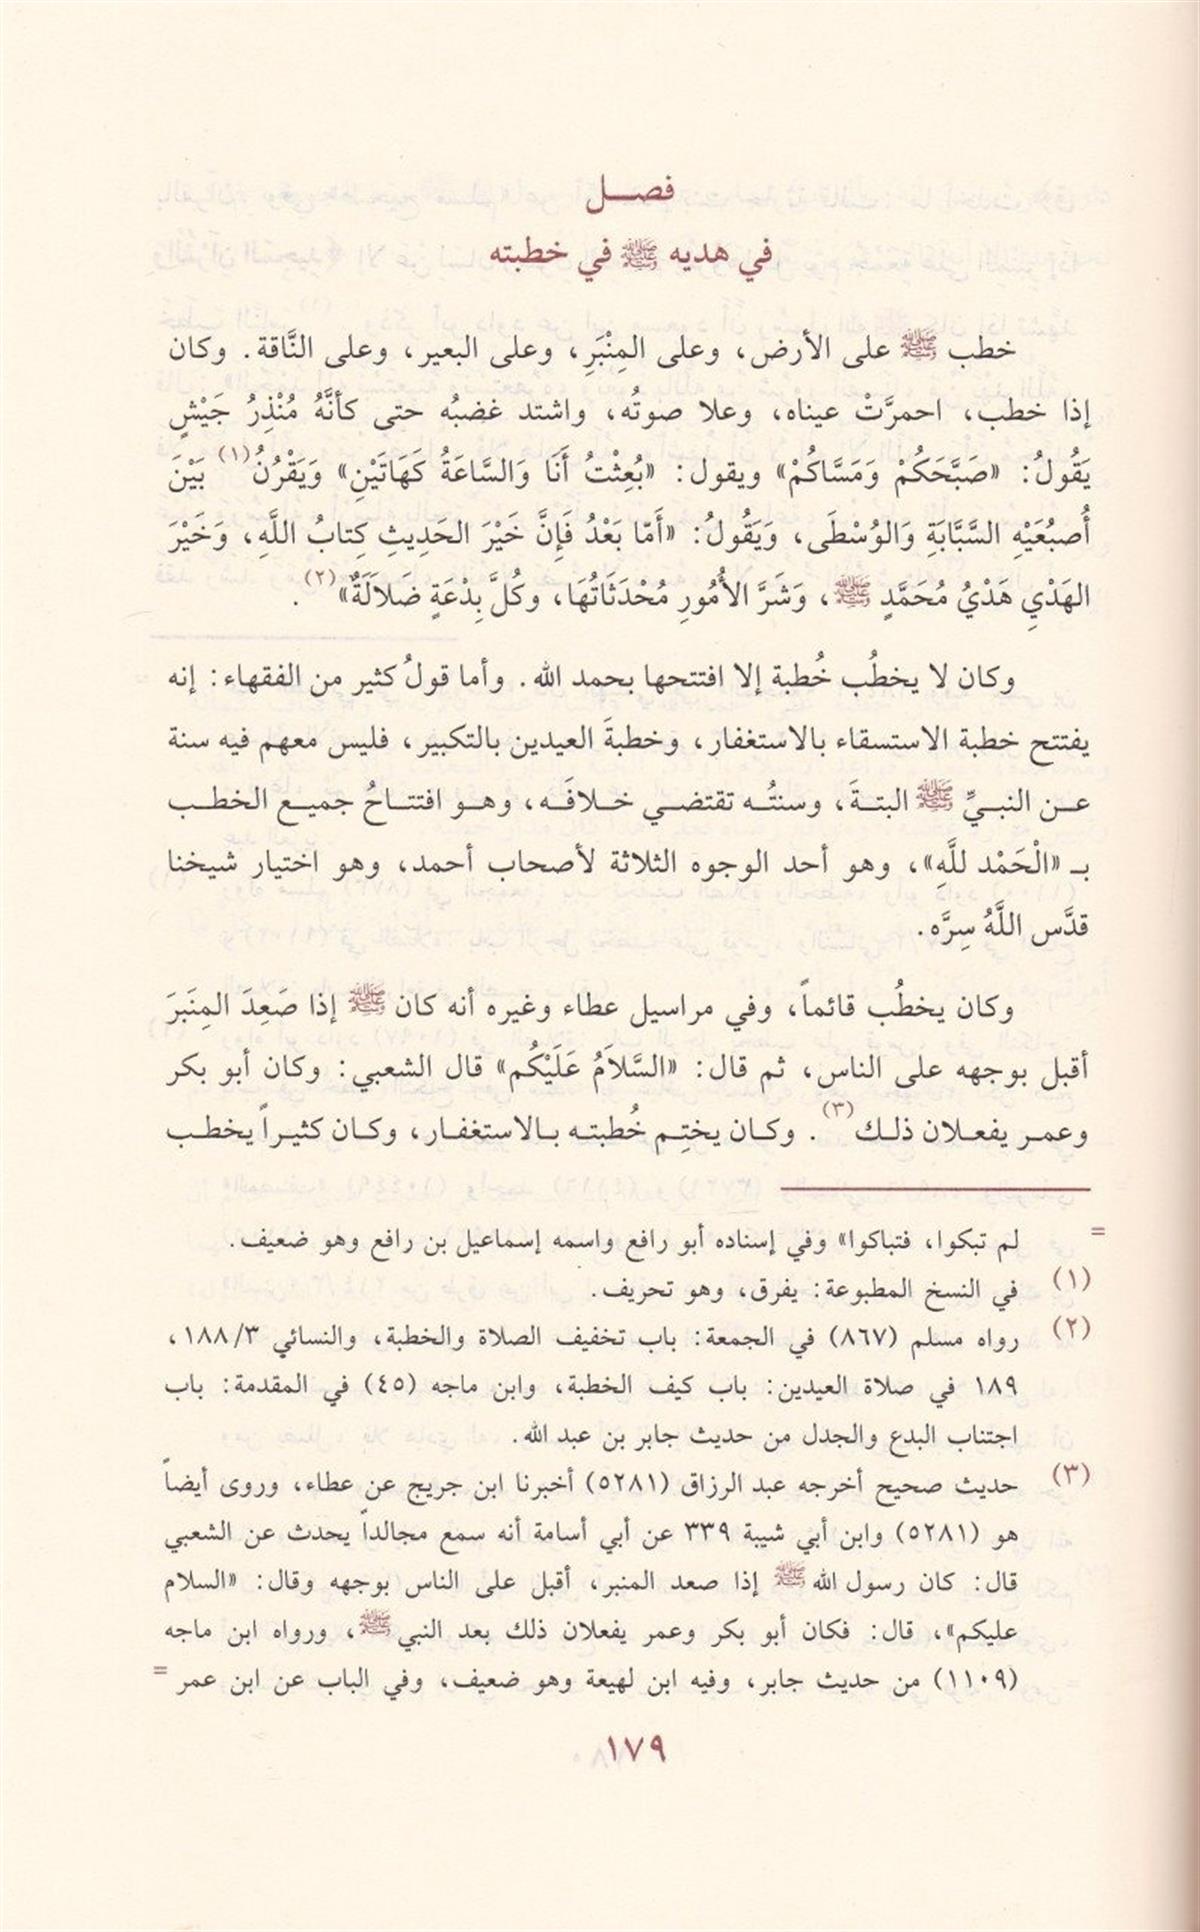 فصــل
في هديه ﷺ في خطبته
خطب ﷺ على الأرض، وعلى المِنْبَرِ، وعلى البعير، وعلى النَّاقة. وكان
إذا خطب، احمرَّتْ عيناه، وعلا صوتُه، واشتد غضبُه حتى كأنَّهُ مُنْذِرُ جَيْشٍ
يَقُولُ: «صَبَّحَكُمْ وَمَسَّاكُمْ» ويقول: «بُعِثْتُ أَنَا وَالسَّاعَةُ كَهَاتَيْنِ» وَيَقْرُنُ(١) بَيْنَ
أُصبُعَيْهِ السَّبَّابَةِ وَالوُسْطَى، وَيَقُولُ: «أَمّا بَعْدُ فَإِنَّ خَيْرَ الحَدِيثِ كِتابُ اللَّهِ، وَخَيْرَ
الهَدْيِ هَدْيُ مُحَمَّدٍ ﷺ، وَشَرَّ الأُمُورِ مُحْدَثَاتُهَا، وكُلَّ بِدْعَةٍ ضَلاَلَةٌ»(٢).
وكان لا يخطُب خُطبة إلا افتتحها بحمد الله. وأما قولُ كثير من الفقهاء: إنه
يفتتح خطبة الاستسقاء بالاستغفار، وخطبةَ العيدين بالتكبير، فليس معهم فيه سنة
عـن النبـيِّ ﷺ البتـةَ، وسنتُـه تقتضـي خـلافَـه، وهـو افتتـاحُ جميـع الخطـب
بـ «الْحَمْد للَّهِ»، وهو أحد الوجوه الثلاثة لأصحاب أحمد، وهو اختيار شيخنا
قدَّس اللَّهُ سِرَّه.
وكان يخطُب قائماً، وفي مراسيل عطاء وغيره أنه كان ﷺ إذا صَعِدَ المِنَبَرَ
أقبل بوجهه على الناس، ثم قال: «السَّلاَمُ عَلَيْكُم» قال الشعبي: وكان أبو بكر
وعمـر يفعـلان ذلـك(٣). وكـان يختِـم خُطبتـه بـالاستغفـار، وكـان كثيـراً يخطـب
= لم تبكوا، فتباكوا» وفي إسناده أبو رافع واسمه إسماعيل بن رافع وهو ضعيف.
(١) في النسخ المطبوعة: يفرق، وهو تحريف.
(٢) رواه مسلم (٨٦٧) في الجمعة: باب تخفيف الصلاة والخطبة، والنسائي ١٨٨/٣،
١٨٩ في صلاة العيدين: باب كيف الخطبة، وابن ماجه (٤٥) في المقدمة: باب
اجتناب البدع والجدل من حديث جابر بن عبد الله.
(٣) حديث صحيح أخرجه عبد الرزاق (٥٢٨١) أخبرنا ابن جريج عن عطاء، وروى أيضاً
هو (٥٢٨١) وابن أبي شيبة ٣٣٩ عن أبي أسامة أنه سمع مجالداً يحدث عن الشعبي
قال: كان رسول الله ﷺ إذا صعد المنبر، أقبل على الناس بوجهه وقال: «السلام
عليكم»، قال: فكان أبو بكر وعمر يفعلان ذلك بعد النبي ﷺ، ورواه ابن ماجه
(١١٠٩) من حديث جابر، وفيه ابن لهيعة وهو ضعيف، وفي الباب عن ابن عمر =
١٧٩